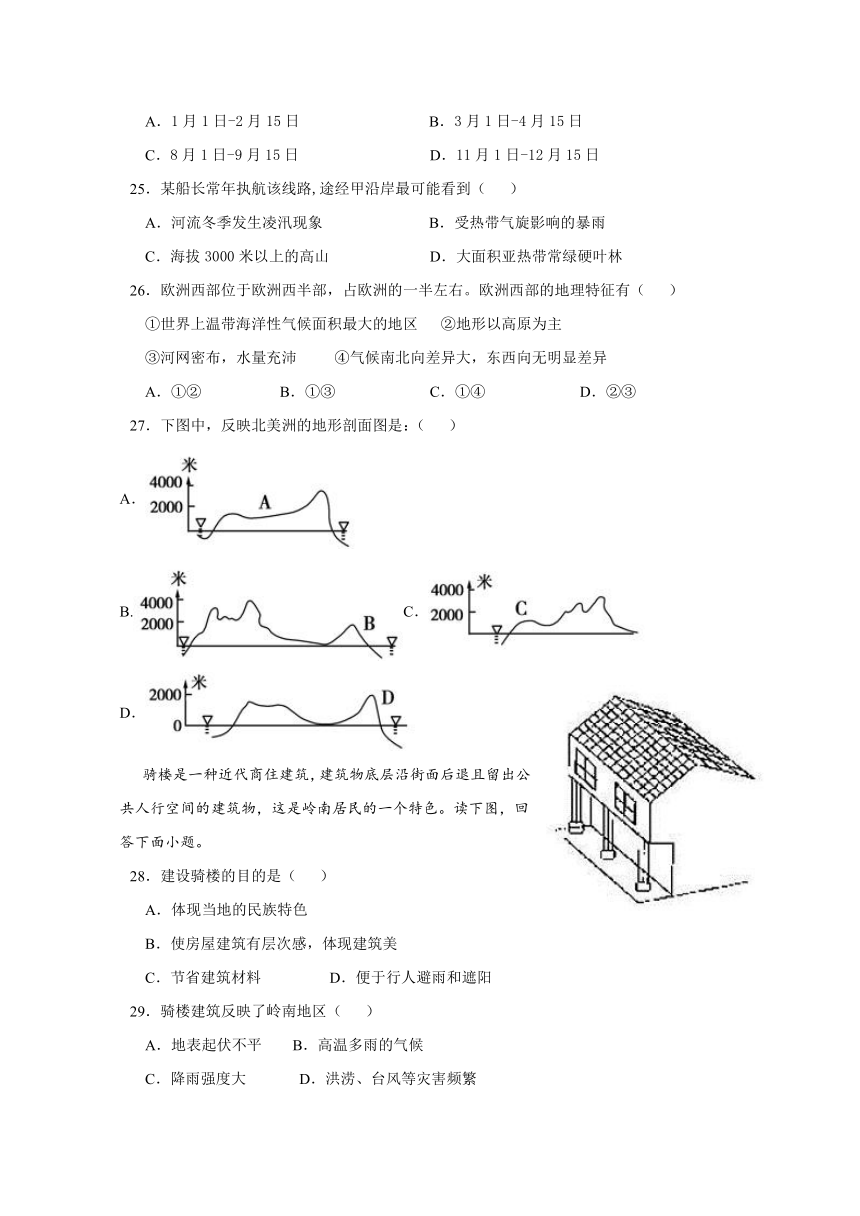 A．1月1日-2月15日 B．3月1日-4月15日
C．8月1日-9月15日 D．11月1日-12月15日
25．某船长常年执航该线路,途经甲沿岸最可能看到（ ）
A．河流冬季发生凌汛现象 B．受热带气旋影响的暴雨
C．海拔3000米以上的高山 D．大面积亚热带常绿硬叶林
26．欧洲西部位于欧洲西半部，占欧洲的一半左右。欧洲西部的地理特征有（ ）
①世界上温带海洋性气候面积最大的地区 ②地形以高原为主
③河网密布，水量充沛 ④气候南北向差异大，东西向无明显差异
A．①② B．①③ C．①④ D．②③
27．下图中，反映北美洲的地形剖面图是:（ ）
A．
米
4000
2000
A
B.
米
4000
2000
B
C．
米
4000
2000
C
D．
米
2000
0
D
骑楼是一种近代商住建筑,建筑物底层沿街面后退且留出公
共人行空间的建筑物，这是岭南居民的一个特色。读下图，回
答下面小题。
28．建设骑楼的目的是（ ）
A．体现当地的民族特色
B．使房屋建筑有层次感，体现建筑美
C．节省建筑材料 D．便于行人避雨和遮阳
29．骑楼建筑反映了岭南地区（ ）
A．地表起伏不平 B．高温多雨的气候
C．降雨强度大 D．洪涝、台风等灾害频繁